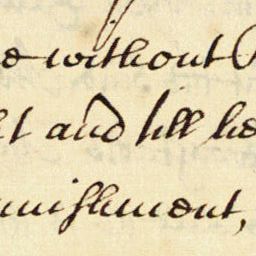 e without
t and till he
unishment,